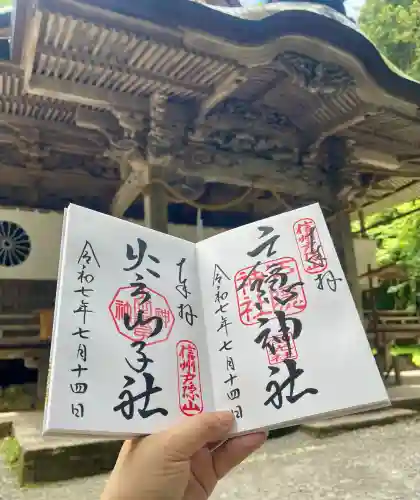 奉拝
信州戸隠山
戸隠神社
令和七年七月十四日
奉拝
信州戸隠山
火之御子社
令和七年七月十四日